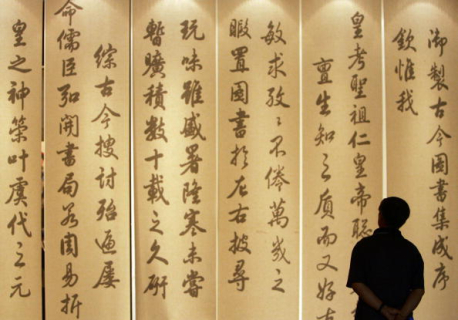 御製古今圖書集成序
欽惟我
皇考聖祖仁皇帝聰
亶生知之質而又好古
敏求孜々不倦萬幾之
暇置圖書於左右披尋
玩味雖盛暑隆寒未嘗
暫曠積數十載之久研
綜古今搜討殆遍屢
命儒臣弘開書局若周易折
皇之神策叶虞代之元